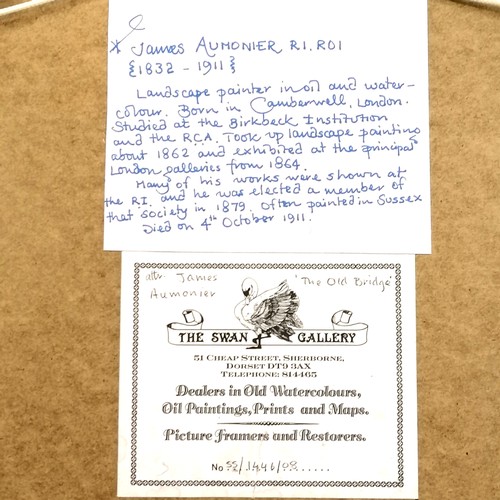 * James AUMONIER R.I. ROI
{1832 - 1911}
Landscape painter in oil and water-
colour. Born in Camberwell, London.
Studied at the Birkbeck Institution
and the R.C.A. Took up landscape painting
about 1862 and exhibited at the principal
London galleries from 1864.
Many of his works were shown at
the R.I. and he was elected a member of
that society in 1879. Often painted in Sussex
Died on 4th October 1911.
attr. James Aumonier
'The Old Bridge'
THE SWAN GALLERY
51 CHEAP STREET, SHERBORNE,
DORSET DT9 3AX
TELEPHONE: 814465
Dealers in Old Watercolours,
Oil Paintings, Prints and Maps.
Picture Framers and Restorers.
No